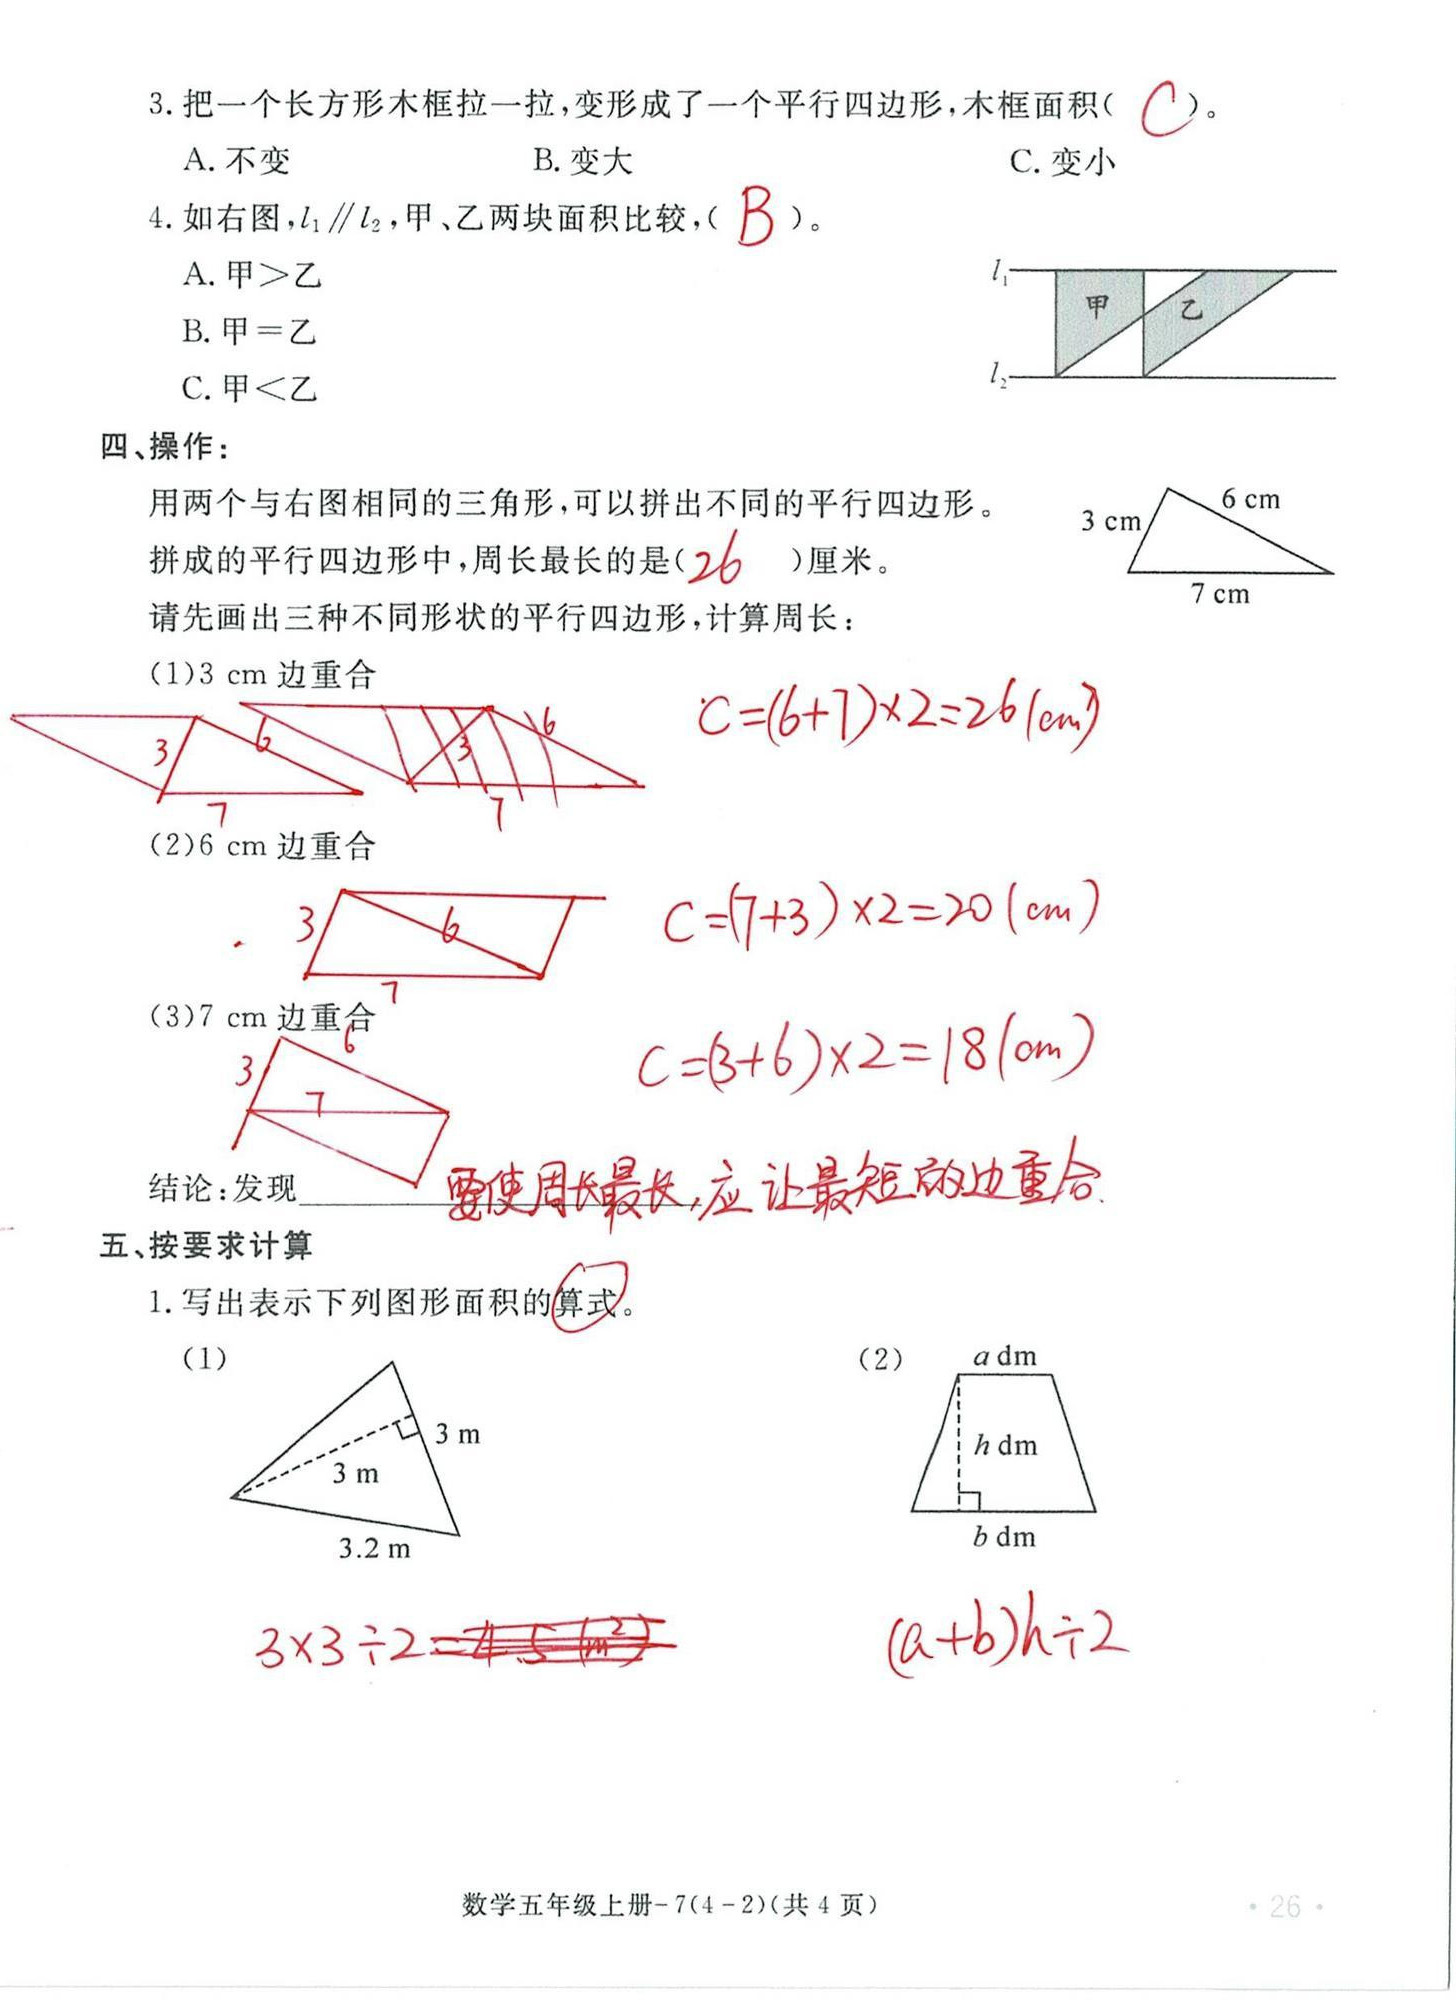 3. 把一个长方形木框拉一拉,变形成了一个平行四边形,木框面积( C )。
A. 不变 B. 变大 C. 变小
4. 如右图,l₁∥l₂,甲、乙两块面积比较,( B )。
A. 甲＞乙
B. 甲＝乙
C. 甲＜乙
l₁
甲 乙
l₂
四、操作:
用两个与右图相同的三角形,可以拼出不同的平行四边形。
拼成的平行四边形中,周长最长的是( 26 )厘米。
3 cm 6 cm
7 cm
请先画出三种不同形状的平行四边形,计算周长:
(1)3 cm 边重合
3 6 3 6
7 7
C=(6+7)×2=26(cm)
(2)6 cm 边重合
3 6
7
C=(7+3)×2=20(cm)
(3)7 cm 边重合
3 6
7
C=(3+6)×2=18(cm)
结论:发现 要使周长最长,应让最短的边重合.
五、按要求计算
1. 写出表示下列图形面积的算式。
(1) (2)
3 m
3 m
3.2 m
a dm
h dm
b dm
3×3÷2=4.5(m²)
(a+b)h÷2
数学五年级上册-7(4-2)(共 4 页)
· 26 ·